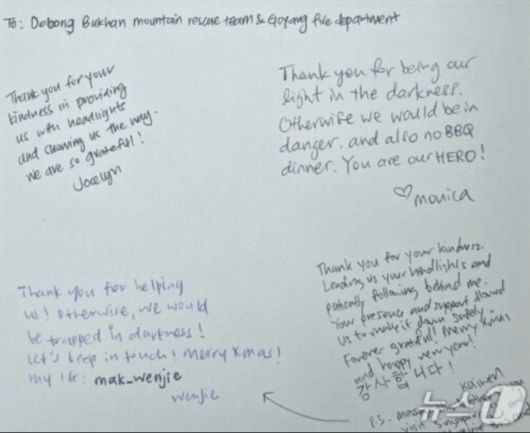 To: Dobong Bukhan mountain rescue team & Goyang fire department
Thank you for your
kindness in providing
us with headlights
and showing us the way.
We are so grateful!
Jocelyn
Thank you for being our
light in the darkness.
Otherwise we would be in
danger, and also no BBQ
dinner. You are our HERO!
♡monica
Thank you for helping
us! Otherwise, we would
be trapped in darkness!
Let's keep in touch! Merry Xmas!
my IG: mak_wenjie
wenjie
Thank you for your kindness.
Lending us your headlights and
patiently following behind me.
Your presence and support allowed
us to make it down safely.
Forever grateful! Merry Xmas
and happy new year!
감사합니다!
P.S.
visit Singapore
뉴스1